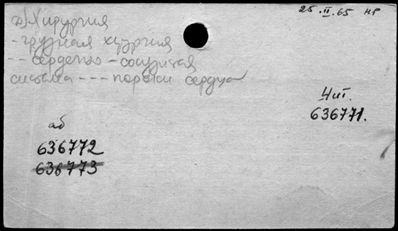 25.II.65 нр
д) Хирургия
- грудная хирургия
-- сердечно-сосудистая
система --- пороки сердца
Чит.
636771.
аб
636772
636773